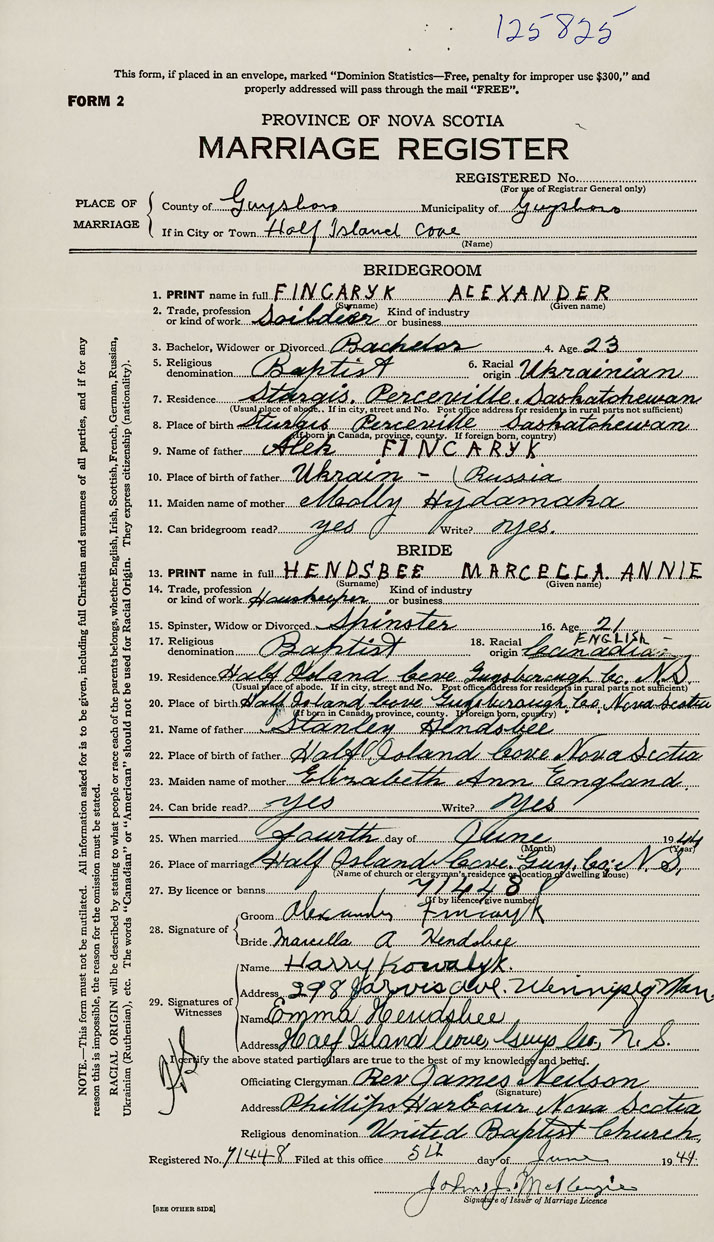 125825
This form, if placed in an envelope, marked "Dominion Statistics—Free, penalty for improper use $300," and
properly addressed will pass through the mail "FREE".
FORM 2
PROVINCE OF NOVA SCOTIA
MARRIAGE REGISTER
REGISTERED No.
(For use of Registrar General only)
PLACE OF MARRIAGE
County of Guysboro Municipality of Guysboro
If in City or Town Half Island Cove
(Name)
BRIDEGROOM
1. PRINT name in full FINCARYK ALEXANDER
(Surname) (Given name)
2. Trade, profession or kind of work Soildier Kind of industry or business
3. Bachelor, Widower or Divorced Bachelor 4. Age 23
5. Religious denomination Baptist 6. Racial origin Ukrainian
7. Residence Sturgis, Perceville, Saskatchewan
(Usual place of abode. If in city, street and No. Post office address for residents in rural parts not sufficient)
8. Place of birth Sturgis Perceville Saskatchewan
(If born in Canada, province, county. If foreign born, country)
9. Name of father Alek FINCARYK
10. Place of birth of father Ukrain - Russia
11. Maiden name of mother Molly Hydamaka
12. Can bridegroom read? yes Write? yes.
BRIDE
13. PRINT name in full HENDSBEE MARCELLA ANNIE
(Surname) (Given name)
14. Trade, profession or kind of work Housekeeper Kind of industry or business
15. Spinster, Widow or Divorced Spinster 16. Age 21
17. Religious denomination Baptist 18. Racial origin ENGLISH - Canadian
19. Residence Half Island Cove Guysborough Co. N.S.
(Usual place of abode. If in city, street and No. Post office address for residents in rural parts not sufficient)
20. Place of birth Half Island Cove Guysborough Co. Nova Scotia
(If born in Canada, province, county. If foreign born, country)
21. Name of father Stanley Hendsbee
22. Place of birth of father Half Island Cove Nova Scotia
23. Maiden name of mother Elizabeth Ann England
24. Can bride read? yes Write? yes
25. When married fourth day of June 1944
(Month) (Year)
26. Place of marriage Half Island Cove. Guy. Co. N.S.
(Name of church or clergyman's residence or location of dwelling house)
27. By licence or banns 71448
(If by licence, give number)
28. Signature of
Groom Alexander Fincaryk
Bride Marcella A Hendsbee
29. Signatures of Witnesses
Name Harry Kowalyk.
Address 298 Jarvis ave. Winnipeg Man
Name Emma Hendsbee
Address Half Island Cove, Guys Co, N.S.
I certify the above stated particulars are true to the best of my knowledge and belief.
Officiating Clergyman Rev James Neilson
(Signature)
Address Phillips Harbour Nova Scotia
Religious denomination United Baptist Church,
Registered No. 71448 Filed at this office 5th day of June 1944.
John J. McKenzie
Signature of Issuer of Marriage Licence
[SEE OTHER SIDE]
NOTE.—This form must not be mutilated. All information asked for is to be given, including full Christian and surnames of all parties, and if for any
reason this is impossible, the reason for the omission must be stated.
RACIAL ORIGIN will be described by stating to what people or race each of the parents belongs, whether English, Irish, Scottish, French, German, Russian,
Ukrainian (Ruthenian), etc. The words "Canadian" or "American" should not be used for Racial Origin. They express citizenship (nationality).